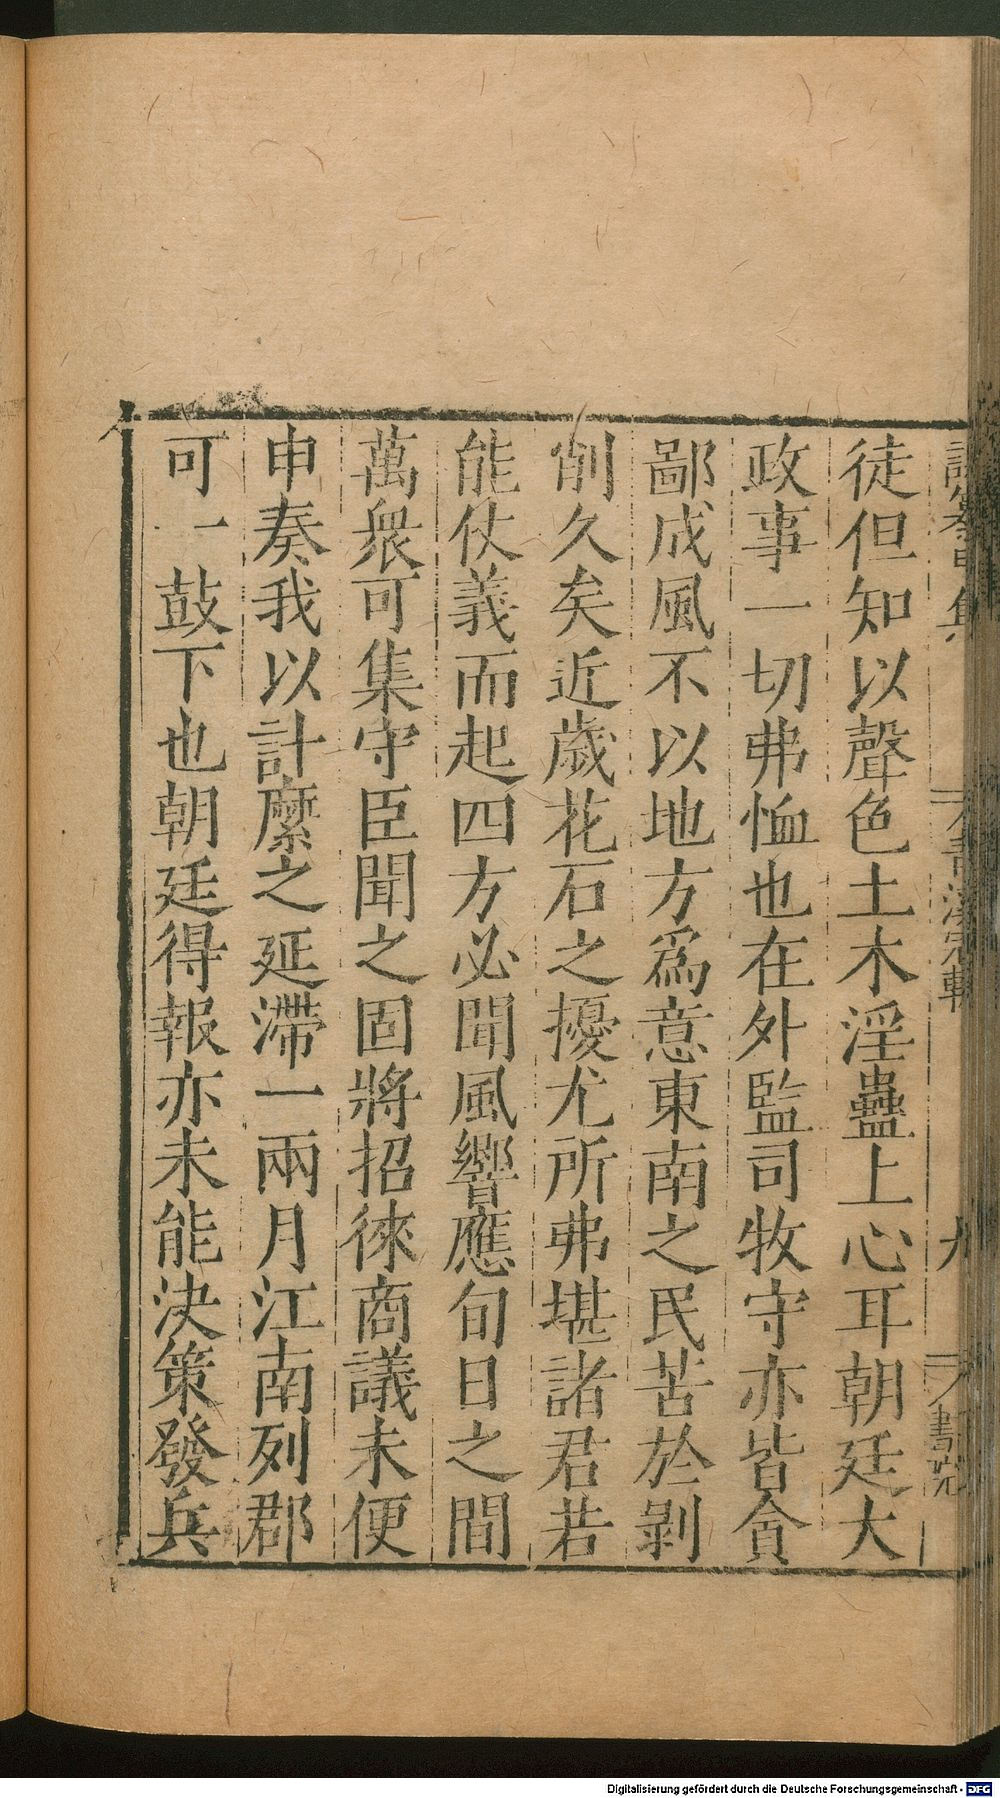 徒但知以聲色土木淫蠱上心耳朝廷大
政事一切弗恤也在外監司牧守亦皆貪
鄙成風不以地方爲意東南之民苦於剝
削久矣近歲花石之擾尤所弗堪諸君若
能仗義而起四方必聞風響應旬日之間
萬衆可集守臣聞之固將招徠商議未便
申奏我以計縻之延滯一兩月江南列郡
可一鼓下也朝廷得報亦未能決策發兵
Digitalisierung gefördert durch die Deutsche Forschungsgemeinschaft - DFG